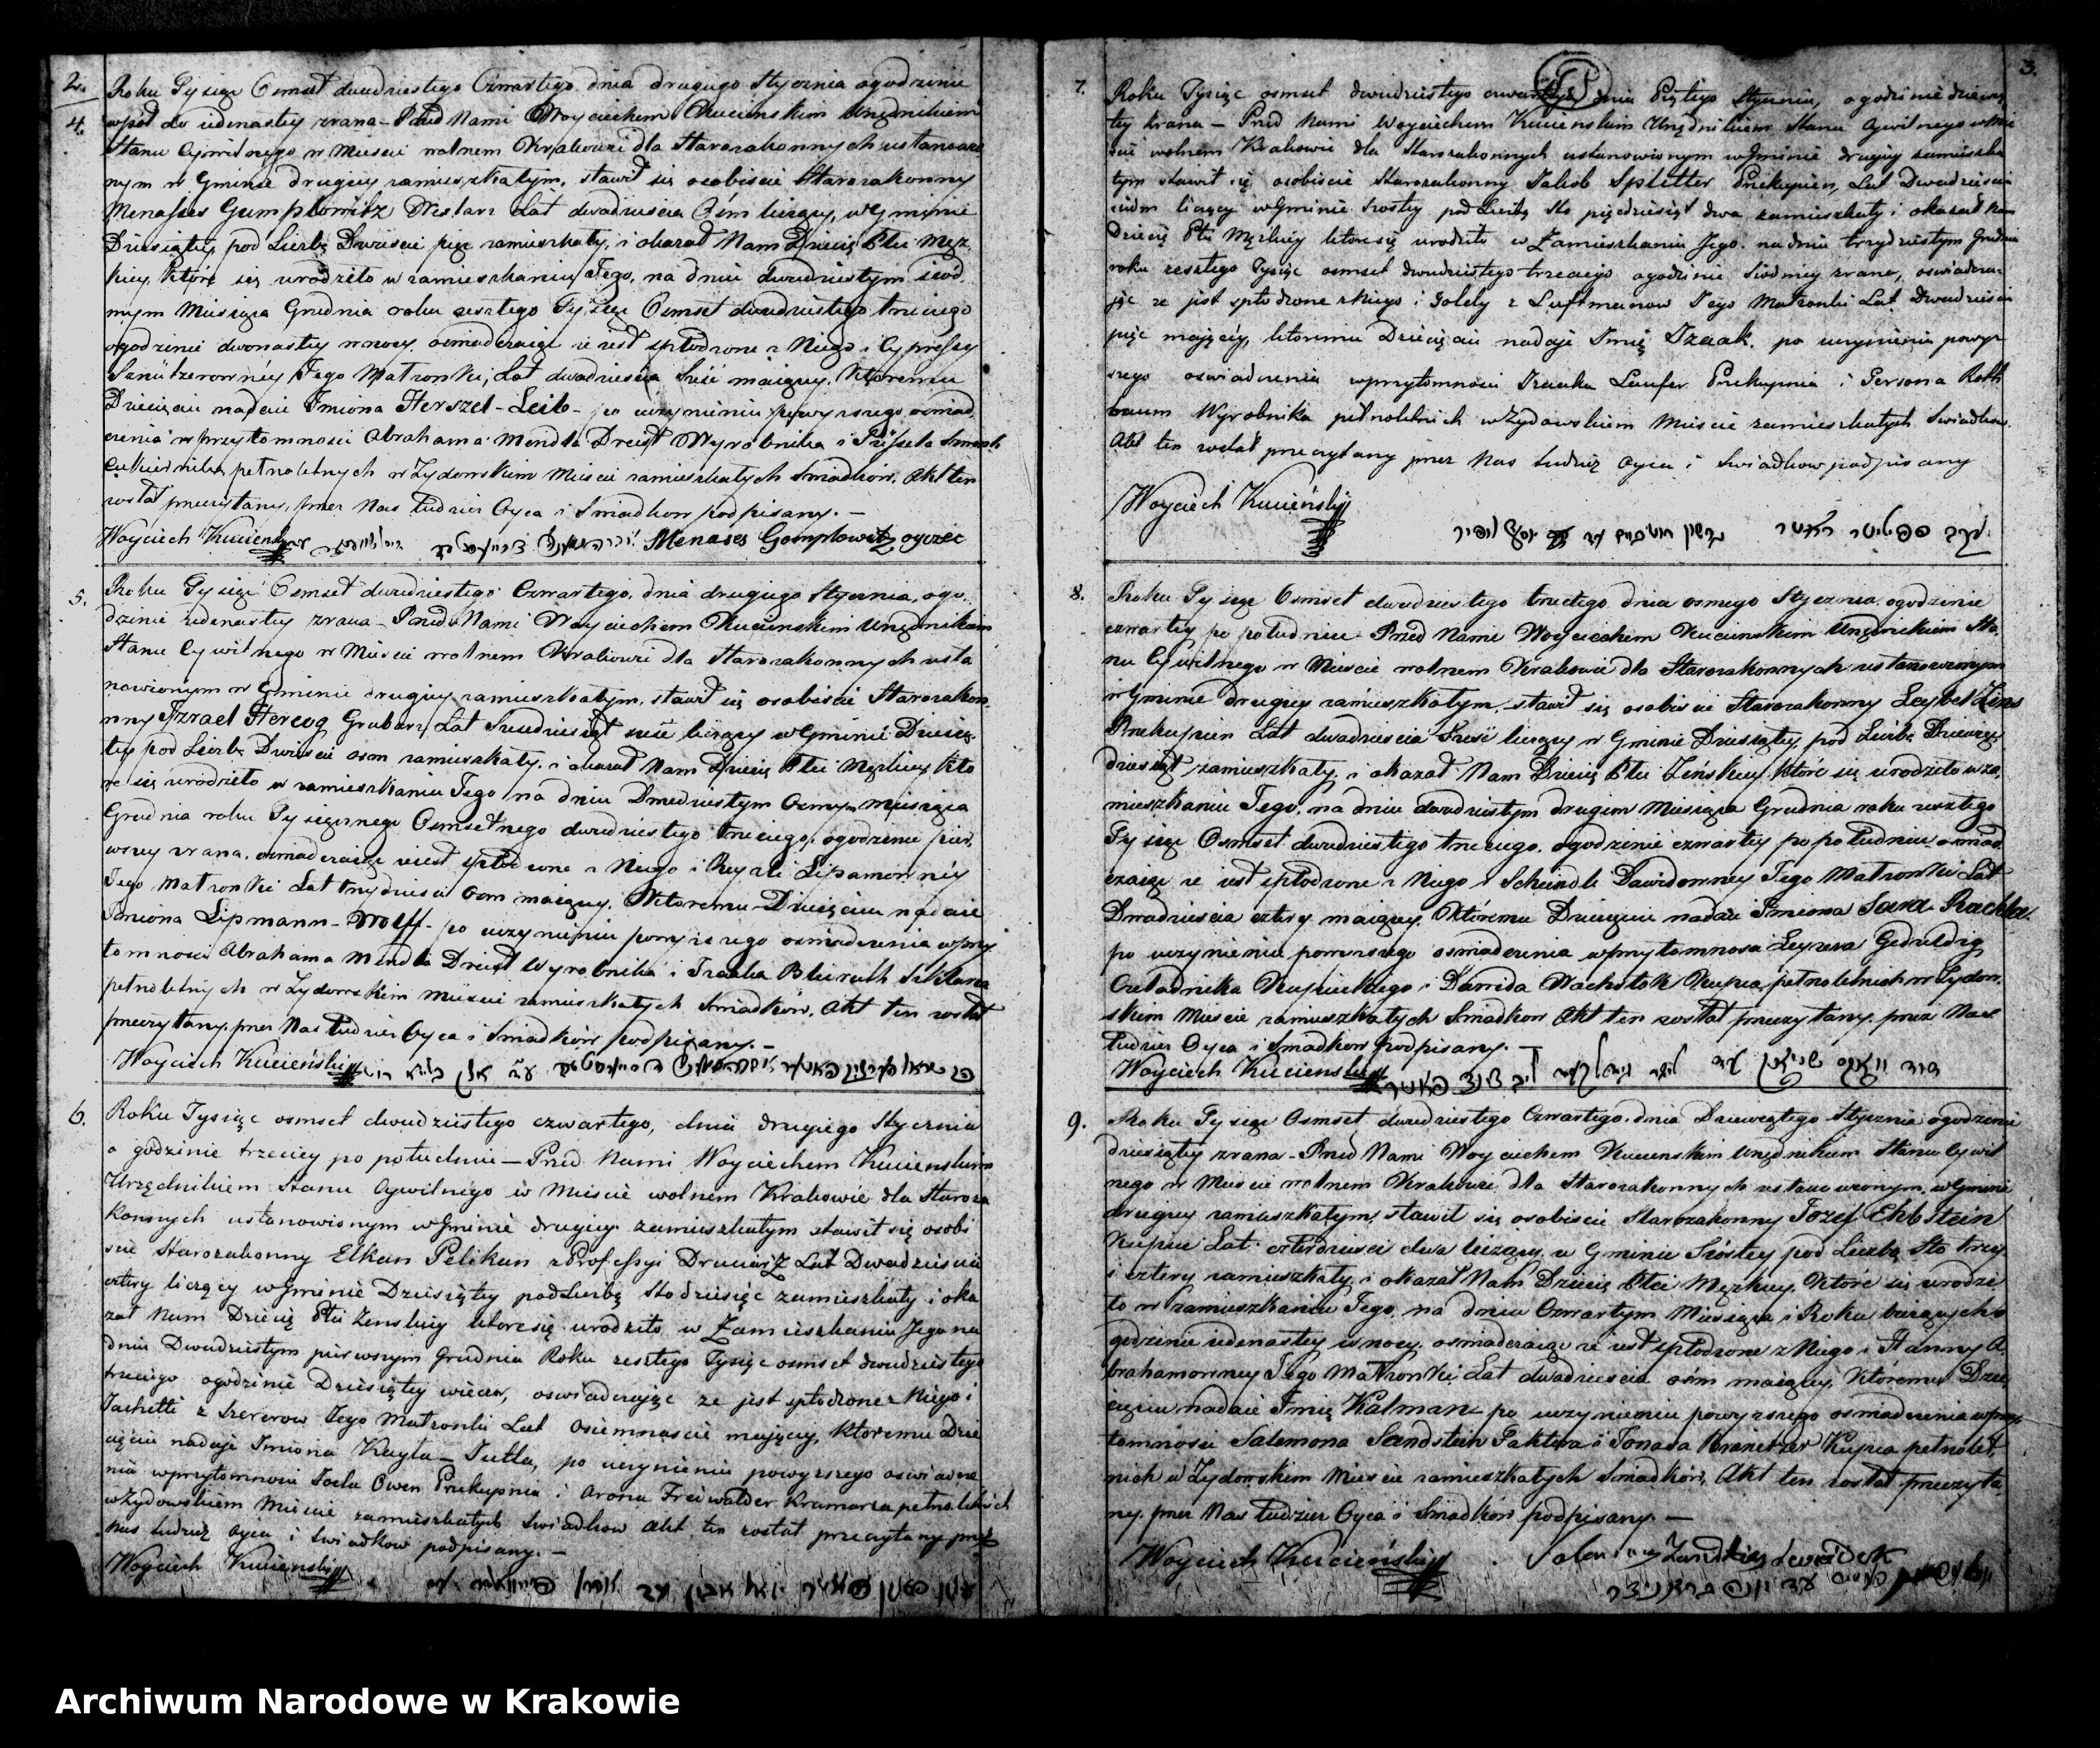 2.
4.
Roku Tysiąc Osmset dwudziestego Czwartego, dnia drugiego Stycznia o godzinie
wpół do iedenastey zrana – Przed Nami Woyciechem Kucienskim Urzędnikiem
Stanu Cywilnego w Mieście wolnem Krakowie dla Starozakonnych ustanowio
nym w Gminie drugiey zamieszkałym, stawił się osobiscie Starozakonny
Menasses Gumplowitz Lat dwadziescia Ośm liczący, w Gminie
Dziesiątey pod Liczbą Dwieście pięć zamieszkały, i okazał Nam Dziecię Płci Męz
kiey, które się urodziło w zamieszkaniu Jego, na dniu dwudziestym siód
mym Miesiąca Grudnia roku zeszłego Tysiąc Osmset dwudziestego trzeciego
o godzinie dwonastey w nocy, oświadczaiąc że iest spłodzone z Niego i Cypressy
Jego Matronki, Lat dwadziescia sześć maiącey, któremu
Dziecięciu nadaie Imiona Herszel-Leib – po uczynieniu powyższego oświad
czenia w przytomności Abrahama Mendla Wyrobnika i
Cukiernika pełnoletnych w Żydowskim Mieście zamieszkałych Świadków. Akt ten
został przeczytany, przez Nas tudzież Oyca i Świadków podpisany. –
Woyciech Kucieński Menases Gomplowitz oyciec
5.
Roku Tysiąc Osmset dwudziestego Czwartego, dnia drugiego Stycznia, ogo
dzinie iedenastey zrana – Przed Nami Woyciechem Kucienskim Urzędnikiem
Stanu Cywilnego w Mieście wolnem Krakowie dla Starozakonnych usta
nowionym w Gminie drugiey zamieszkałym, stawił się osobiscie Starozakon
nny Izrael Hercog Grabarz Lat sześć liczący w Gminie Dziesią
tey pod Liczbą Dwieście osm zamieszkały, i okazał Nam Dziecię Płci Męzkiey któ
re się urodziło w zamieszkaniu Jego na dniu Dwudziestym Osmym Miesiąca
Grudnia roku Tysiącznego Osmsetnego dwudziestego trzeciego, o godzinie pier
wszey zrana, oświadczaiąc iż iest spłodzone z Niego i Reyzli Lipamowney
Jego Matronki Lat trzydziesci osm maiącey, któremu Dziecięciu nadaie
Imiona Lipmann-Wolff – po uczynieniu powyższego oświadczenia w przy
tomności Abrahama Mendla Wyrobnika i Izaaka Szklarza
pełnoletnych w Żydowskim Mieście zamieszkałych Świadków, Akt ten został
przeczytany, przez Nas tudzież Oyca i Świadków podpisany. –
Woyciech Kucieński
6.
Roku Tysiąc osmset dwudziestego czwartego, dnia drugiego Stycznia
o godzinie trzeciey po południu – Przed Nami Woyciechem Kucienskim
Urzędnikiem Stanu Cywilnego w Mieście wolnem Krakowie dla Staroza
konnych ustanowionym w Gminie drugiey zamieszkałym stawił się osobi
scie Starozakonny Elkan Pelikan z Professyi Druciarz Lat Dwadziescia
cztery liczący w Gminie Dziesiątey pod Liczbą Sto dziesięć zamieszkały i oka
zał Nam Dziecię Płci Zenskiey które się urodziło w Zamieszkaniu Jego na
dniu Dwudziestym pierwszym Grudnia Roku zeszłego Tysiąc osmset dwudziestego
trzeciego o godzinie Dziesiątey wieczor, oswiadczając że jest spłodzone z Niego i
Jachetti z Jego Matronki Lat Osiemnascie mającey, któremu Dzie
cięciu nadaje Imiona Kayla – Jutla, po uczynieniu powyzszego oświadcze
nia w przytomności Joela Owen Przekupnia i Arona Freiwalder Kramarza pełnoletnich
w Zydowskiem Mieście zamieszkałych Świadkow Akt ten został przeczytany przez
Nas tudzież Oyca i Swiadkow podpisany. –
Woyciech Kucieński
3.
7.
Roku Tysiąc osmset dwudziestego czwartego dnia Piątego Stycznia, o godzinie dziewią
tey zrana – Przed Nami Woyciechem Kucienskim Urzędnikiem Stanu Cywilnego w Mie
scie wolnem Krakowie dla Starozakonnych ustanowionym w Gminie drugiey zamieszka
łym stawił się osobiscie Starozakonny Jakob Splitter Przekupien, Lat Dwadziescia
siedm liczący w Gminie Szostey pod Liczbą Sto pięćdziesiąt dwa zamieszkały i okazał Nam
Dziecię Płci Męzkiey które się urodziło w Zamieszkaniu Jego na dniu trzydziestym Grudnia
roku zeszłego Tysiąc osmset dwudziestego trzeciego o godzinie Siodmey zrana, oswiadcza
jąc ze jest spłodzone z Niego i Goldy z Luftmanow Jego Matronki Lat Dwadziescia
pięć mającey, któremu Dziecięciu nadaje Imię Izaak, po uczynieniu powyż
szego oswiadczenia w przytomności Izaaka Laufer Przekupnia i Gersona Roth
baum Wyrobnika pełnoletnich w Zydowskiem Mieście zamieszkałych Swiadkow.
Akt ten został przeczytany przez Nas tudzież Oyca i Swiadkow podpisany
Woyciech Kucieński
8.
Roku Tysiąc Osmset dwudziestego trzeciego dnia osmego Stycznia o godzinie
czwartey po południu – Przed Nami Woyciechem Kucienskim Urzędnikiem Sta
nu Cywilnego w Mieście wolnem Krakowie dla Starozakonnych ustanowionym
w Gminie drugiey zamieszkałym, stawił się osobiscie Starozakonny Leybel Zins
Przekupien Lat dwadzieścia sześć liczący w Gminie Dziesiątey, pod Liczbą Dziewięć
dziesiąt zamieszkały, i okazał Nam Dziecię Płci Żeńskiey, które się urodziło w za
mieszkaniu Jego, na dniu dwudziestym drugim Miesiąca Grudnia roku zeszłego
Tysiąc Osmset dwudziestego trzeciego, o godzinie czwartey po południu oświad
czaiąc że iest spłodzone z Niego i Scheindli Dawidowney Jego Matronki Lat
Dwadzieścia cztery maiącey, któremu Dziecięciu nadaie Imiona Sara Rachla
po uczynieniu powyższego oświadczenia w przytomności Leyzera Geduldig
Czeladnika Kupieckiego i Dawida Kupca, pełnoletnich w Żydow
skim Mieście zamieszkałych Świadkow Akt ten został przeczytany, przez Nas
tudzież Oyca i Świadkow podpisany. –
Woyciech Kucieński
9.
Roku Tysiąc Osmset dwudziestego Czwartego, dnia Dziewiątego Stycznia o godzinie
dziesiątey zrana – Przed Nami Woyciechem Kucienskim Urzędnikiem Stanu Cywil
nego w Mieście wolnem Krakowie dla Starozakonnych ustanowionym, w Gminie
drugiey zamieszkałym, stawił się osobiscie Starozakonny Jozef Ehbstein
Kupiec Lat czterdzieści dwa liczący, w Gminie Szóstey pod Liczbą Sto trzy
i cztery zamieszkały, i okazał Nam Dziecię Płci Męzkiey, które się urodzi
ło w zamieszkaniu Jego, na dniu Czwartym Miesiąca i Roku bieżących o
godzinie iedenastey w nocy, oświadczaiąc że iest spłodzone z Niego i Hanny A
brahamowney Jego Matronki Lat dwadzieścia ośm maiącey, któremu Dzie
cięciu nadaie Imię Kalman po uczynieniu powyższego oświadczenia w przy
tomności Salomona Sandstein Faktora i Jonasa Kupca pełnolet
nich w Żydowskim Mieście zamieszkałych Świadków, Akt ten został przeczyta
ny, przez Nas tudzież Oyca i Świadków podpisany. –
Woyciech Kucieński
Archiwum Narodowe w Krakowie